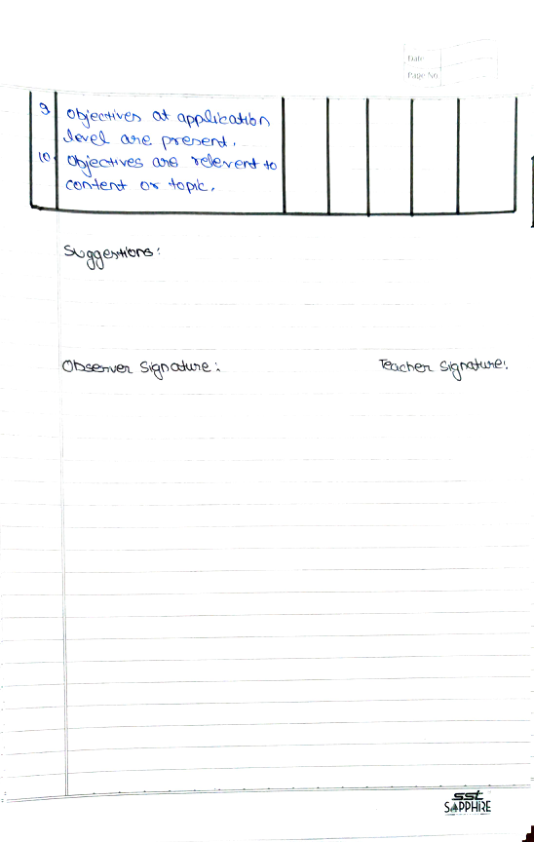 Date
Page No
9 Objectives at application
level are present.
10. Objectives are relevent to
content or topic.
Suggestions:
Observer Signature:
Teacher Signature:
sst
SAPPHIRE